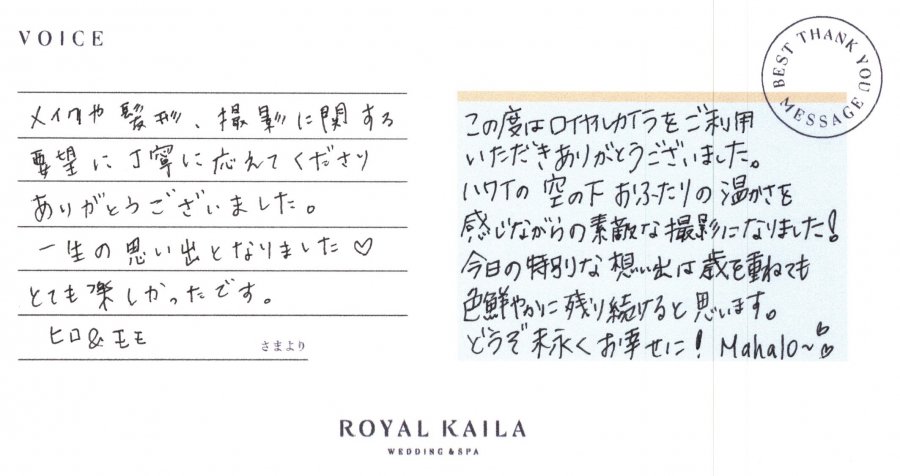 VOICE
BEST THANK YOU MESSAGE
メイクや髪形、撮影に関する
要望に丁寧に応えてくださり
ありがとうございました。
一生の思い出となりました♡
とても楽しかったです。
ヒロ&モモ
さまより
この度はロイヤルカイラをご利用
いただきありがとうございました。
ハワイの空の下おふたりの温かさを
感じながらの素敵な撮影になりました!
今日の特別な想い出は歳を重ねても
色鮮やかに残り続けると思います。
どうぞ末永くお幸せに! Mahalo~♡
ROYAL KAILA
WEDDING & SPA